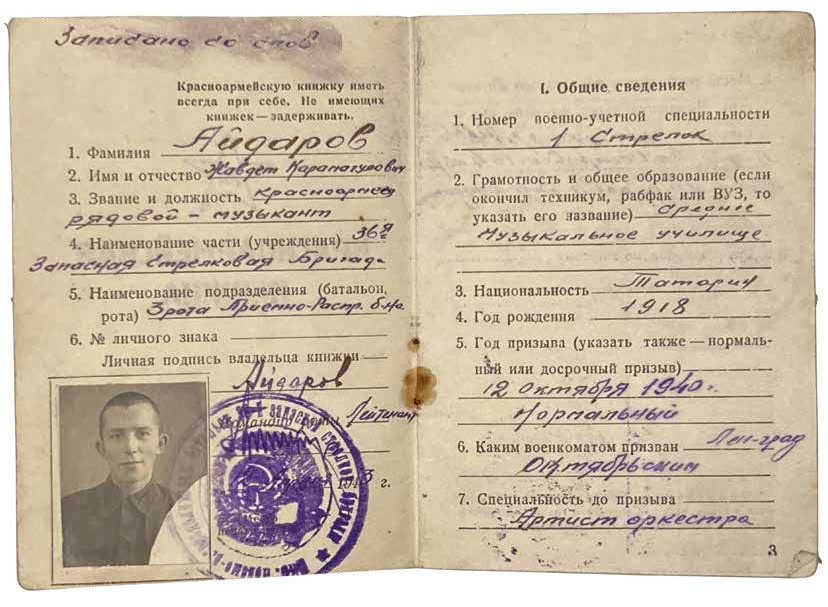 Записано со слов
Красноармейскую книжку иметь
всегда при себе. Не имеющих
книжек — задерживать.
1. Фамилия Айдаров
2. Имя и отчество Жавдет
3. Звание и должность красноармеец
рядовой – музыкант
4. Наименование части (учреждения) 36я
Запасная Стрелковая Бригада
5. Наименование подразделения (батальон,
рота) 3рота Приемно-Распр. б-на
6. № личного знака
Личная подпись владельца книжки
Айдаров
Командир роты Лейтенант
1943 г.
I. Общие сведения
1. Номер военно-учетной специальности
1 Стрелок
2. Грамотность и общее образование (если
окончил техникум, рабфак или ВУЗ, то
указать его название) Среднее
Музыкальное училище
3. Национальность Татарин
4. Год рождения 1918
5. Год призыва (указать также — нормаль-
ный или досрочный призыв)
12 октября 1940г.
Нормальный
6. Каким военкоматом призван Лен-град
Октябрьским
7. Специальность до призыва
Артист оркестра
3